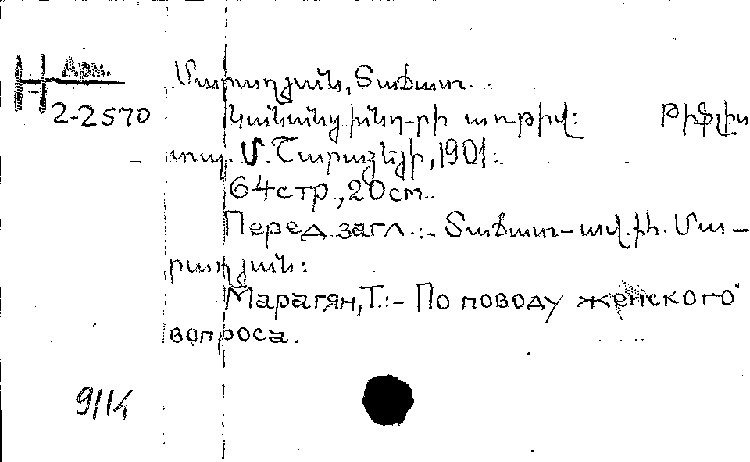 Арм.
Н
2-2570
Մարաղյան, Տաճատ.
Կանանց խնդ-րի առթիվ: Թիֆլիս
տպ. Մ. Շարաձեյի, 1901:
64 стр., 20 см.
Перед загл.:- Տաճատ-ավ. և. Մա-
րաղյան:
Марагян, Т.:- По поводу женского
вопроса.
9/14